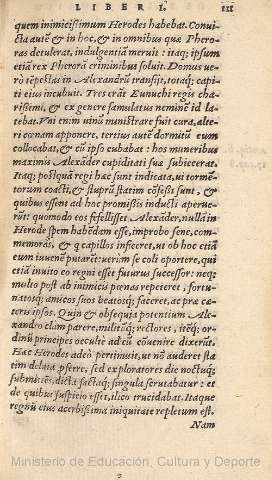 LIBER I. III
quem inimicissimum Herodes habebat. Convi-
cta autē & in hoc, & in omnibus quæ Phero-
ras detulerat, indulgentiā meruit: itaq; ipsum
etiā rex Pherorā criminibus soluit. Domus ve-
rò tēpestas in Alexandrū transijt, totaq; capi-
ti eius incubuit. Tres erāt Eunuchi regis cha-
rissimi, & ex genere famulatus neminē id la-
tebat. Vni enim vinū ministrare fuit cura, alte-
ri cœnam apponere, tertius autē dormitū eum
collocabat, & cū ipso cubabat: hos muneribus
maximis Alexāder cupiditati suæ subiecerat.
Itaq; postquā regi hæc sunt indicata, vi tormē-
torum coacti, & stuprū statim cōfessi sunt, &
quibus essent ad hoc promissis inducti aperue-
rūt: quomodo eos fefellisset Alexāder, nullā in
Herode spem habēdam esse, improbo sene, com-
memorās, & q capillos inficeret, ut ob hoc etiā
eum iuuenē putarēt: uerùm se coli oportere, qui
etiā inuito eo regni esset futurus successor: neq;
multo post ab inimicis pœnas repeteret, fortu-
natosq; amicos suos beatosq; faceret, ac præ cæ-
teris ipsos. Quin & obsequia potentium Ale-
xandro clam parere, militūq; rectores, itēq; or-
dinū principes occultè ad eū cōuenire dixerūt.
Hæc Herodes adeò pertimuit, ut nō auderet sta
tim delata pferre, sed exploratores die noctuq;
submittēs, dicta factaq; singula scrutabatur: et
de quibus suspicio esset, ilico trucidabat. Itaque
regnū eius acerbissima iniquitate repletum est.
Nam
Ministerio de Educación, Cultura y Deporte